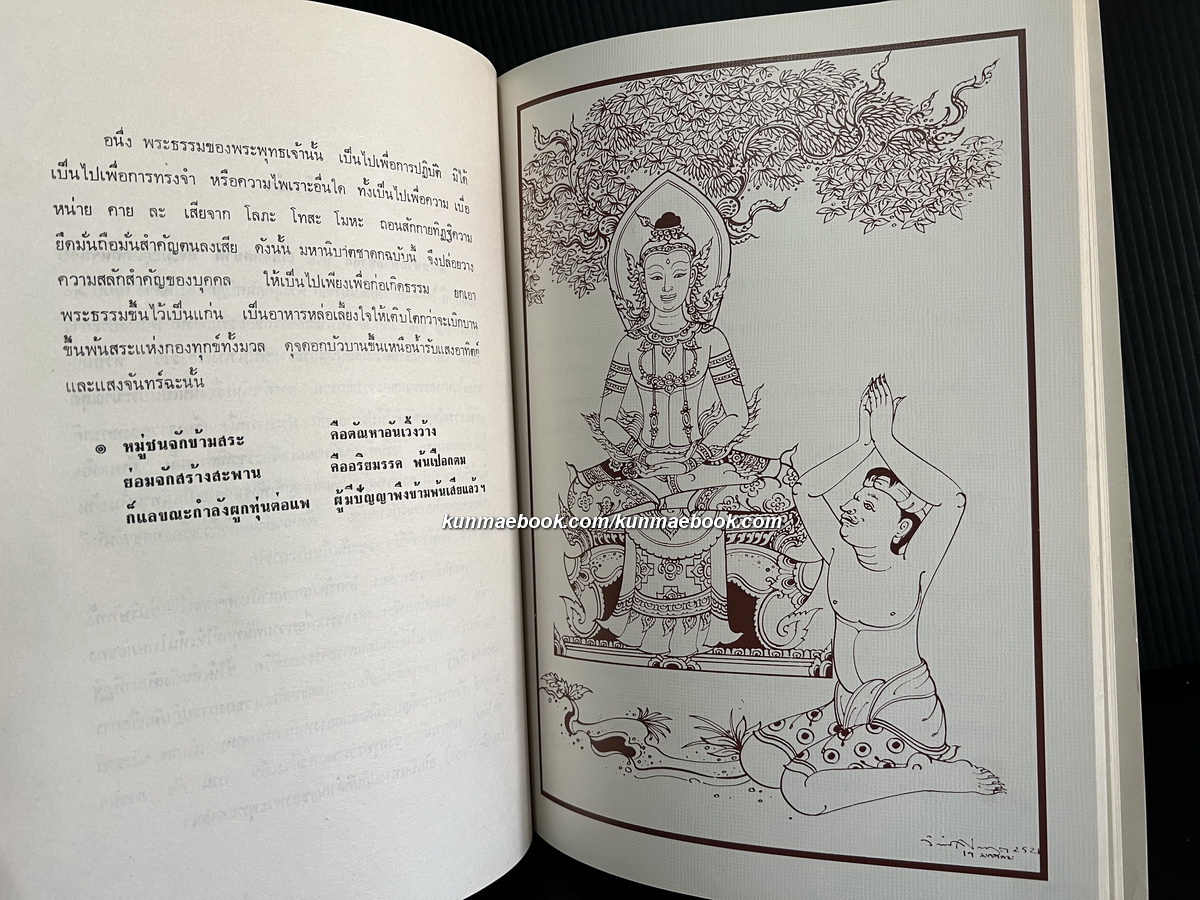 อนึ่ง พระธรรมของพระพุทธเจ้านั้น เป็นไปเพื่อการปฏิบัติ มิได้
เป็นไปเพื่อการทรงจำ หรือความไพเราะอื่นใด ทั้งเป็นไปเพื่อความ เบื่อ
หน่าย คาย ละ เสียจาก โลภะ โทสะ โมหะ ถอนสักกายทิฏฐิความ
ยึดมั่นถือมั่นสำคัญตนลงเสีย ดังนั้น มหานิบาตชาดกฉบับนี้ จึงปล่อยวาง
ความสลักสำคัญของบุคคล ให้เป็นไปเพียงเพื่อก่อเกิดธรรม ยกเอา
พระธรรมขึ้นไว้เป็นแก่น เป็นอาหารหล่อเลี้ยงใจให้เติบโตกว่าจะเบิกบาน
ขึ้นพ้นสระแห่งกองทุกข์ทั้งมวล ดุจดอกบัวบานขึ้นเหนือน้ำรับแสงอาทิตย์
และแสงจันทร์ฉะนั้น
๑ หมู่ชนจักข้ามสระ คือตัณหาอันเวิ้งว้าง
ย่อมจักสร้างสะพาน คืออริยมรรค พ้นเปือกตม
ก็แลขณะกำลังผูกทุ่นต่อแพ ผู้มีปัญญาพึงข้ามพ้นเสียแล้ว ฯ
kunmaebook.com/kunmaebook.com
๑๗ มกราคม